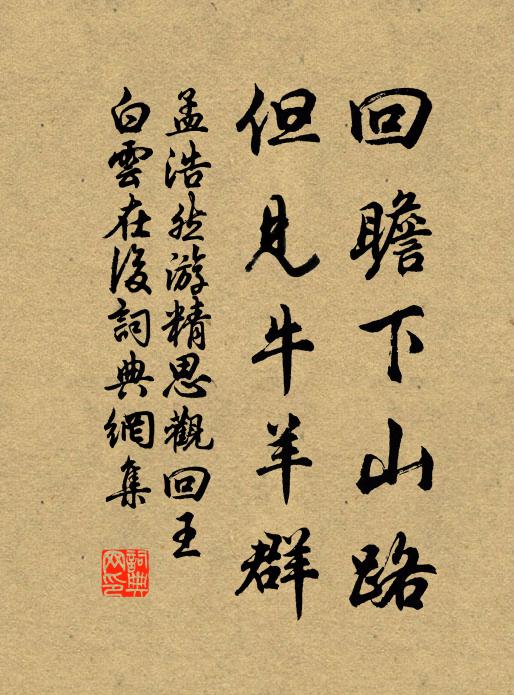 回瞻下山路
但見牛羊群
孟浩然游精思觀回王
白雲在後詞典網集
詞典
网印